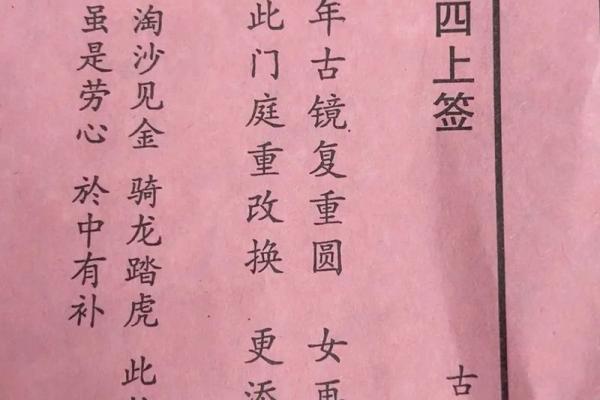 四上签 古
年古镜复重圆 女再
此门庭重改换 更添
淘沙见金 骑龙踏虎 此
虽是劳心 於中有补